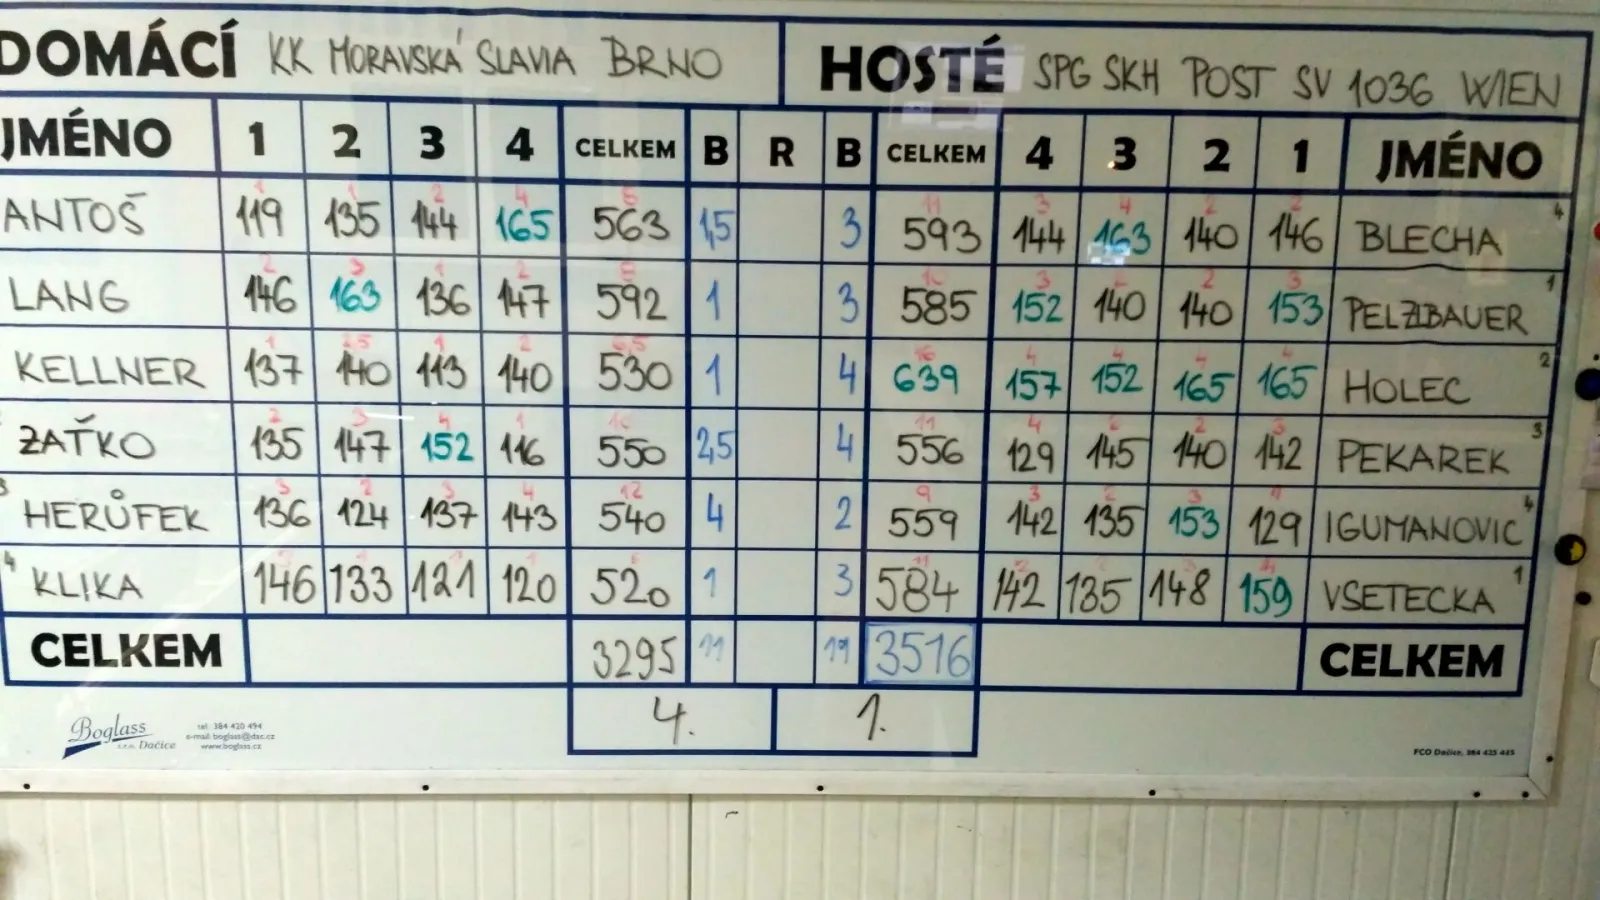 DOMÁCÍ KK MORAVSKÁ SLAVIA BRNO HOSTÉ SPG SKH POST SV 1036 WIEN
JMÉNO 1 2 3 4 CELKEM B R B CELKEM 4 3 2 1 JMÉNO
ANTOŠ 119 135 144 165 563 1,5 3 593 144 163 140 146 BLECHA 4
LANG 146 163 136 147 592 1 3 585 152 140 140 153 PELZLBAUER 1
KELLNER 137 140 113 140 530 1 4 639 157 152 165 165 HOLEC 2
ZAŤKO 135 147 152 116 550 2,5 4 556 129 145 140 142 PEKAREK 3
3 HERŮFEK 136 124 137 143 540 4 2 559 142 135 153 129 IGUMANOVIC 4
4 KLIKA 146 133 121 120 520 1 3 584 142 135 148 159 VSETECKA 1
CELKEM 3295 11 19 3516 CELKEM
4. 1.
Boglass s.r.o. Dačice
tel: 384 420 494
e-mail: boglass@dsc.cz
www.boglass.cz
FCO Dačice, 384 425 445